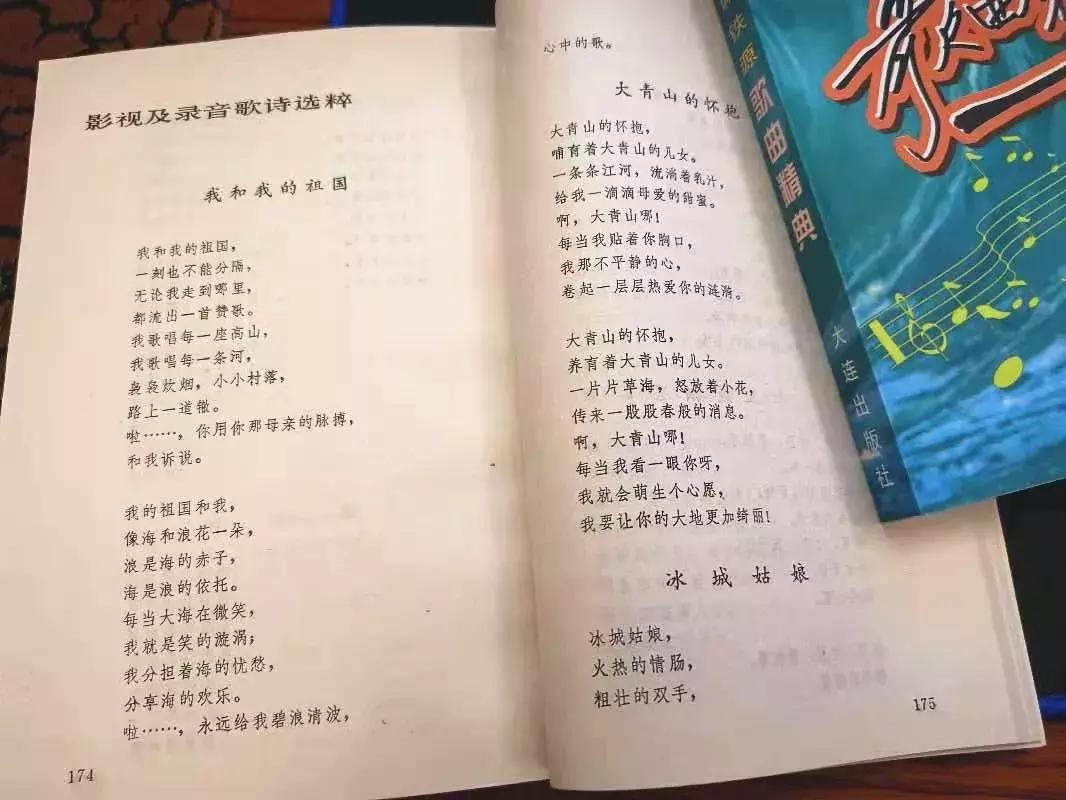 影视及录音歌诗选粹
我和我的祖国
我和我的祖国，
一刻也不能分隔，
无论我走到哪里，
都流出一首赞歌。
我歌唱每一座高山，
我歌唱每一条河，
袅袅炊烟，小小村落，
路上一道辙。
啦……，你用你那母亲的脉搏，
和我诉说。
我的祖国和我，
像海和浪花一朵，
浪是海的赤子，
海是浪的依托。
每当大海在微笑，
我就是笑的漩涡；
我分担着海的忧愁，
分享海的欢乐。
啦……，永远给我碧浪清波，
174
心中的歌。
大青山的怀抱
大青山的怀抱，
哺育着大青山的儿女。
一条条江河，流淌着乳汁，
给我一滴滴母爱的甜蜜。
啊，大青山哪！
每当我贴着你胸口，
我那不平静的心，
卷起一层层热爱你的涟漪。
大青山的怀抱，
养育着大青山的儿女。
一片片草海，怒放着小花，
传来一股股春般的消息。
啊，大青山哪！
每当我看一眼你呀，
我就会萌生个心愿，
我要让你的大地更加绮丽！
冰城姑娘
冰城姑娘，
火热的情肠，
粗壮的双手，
175
铁源歌曲精典
大连出版社
歌曲